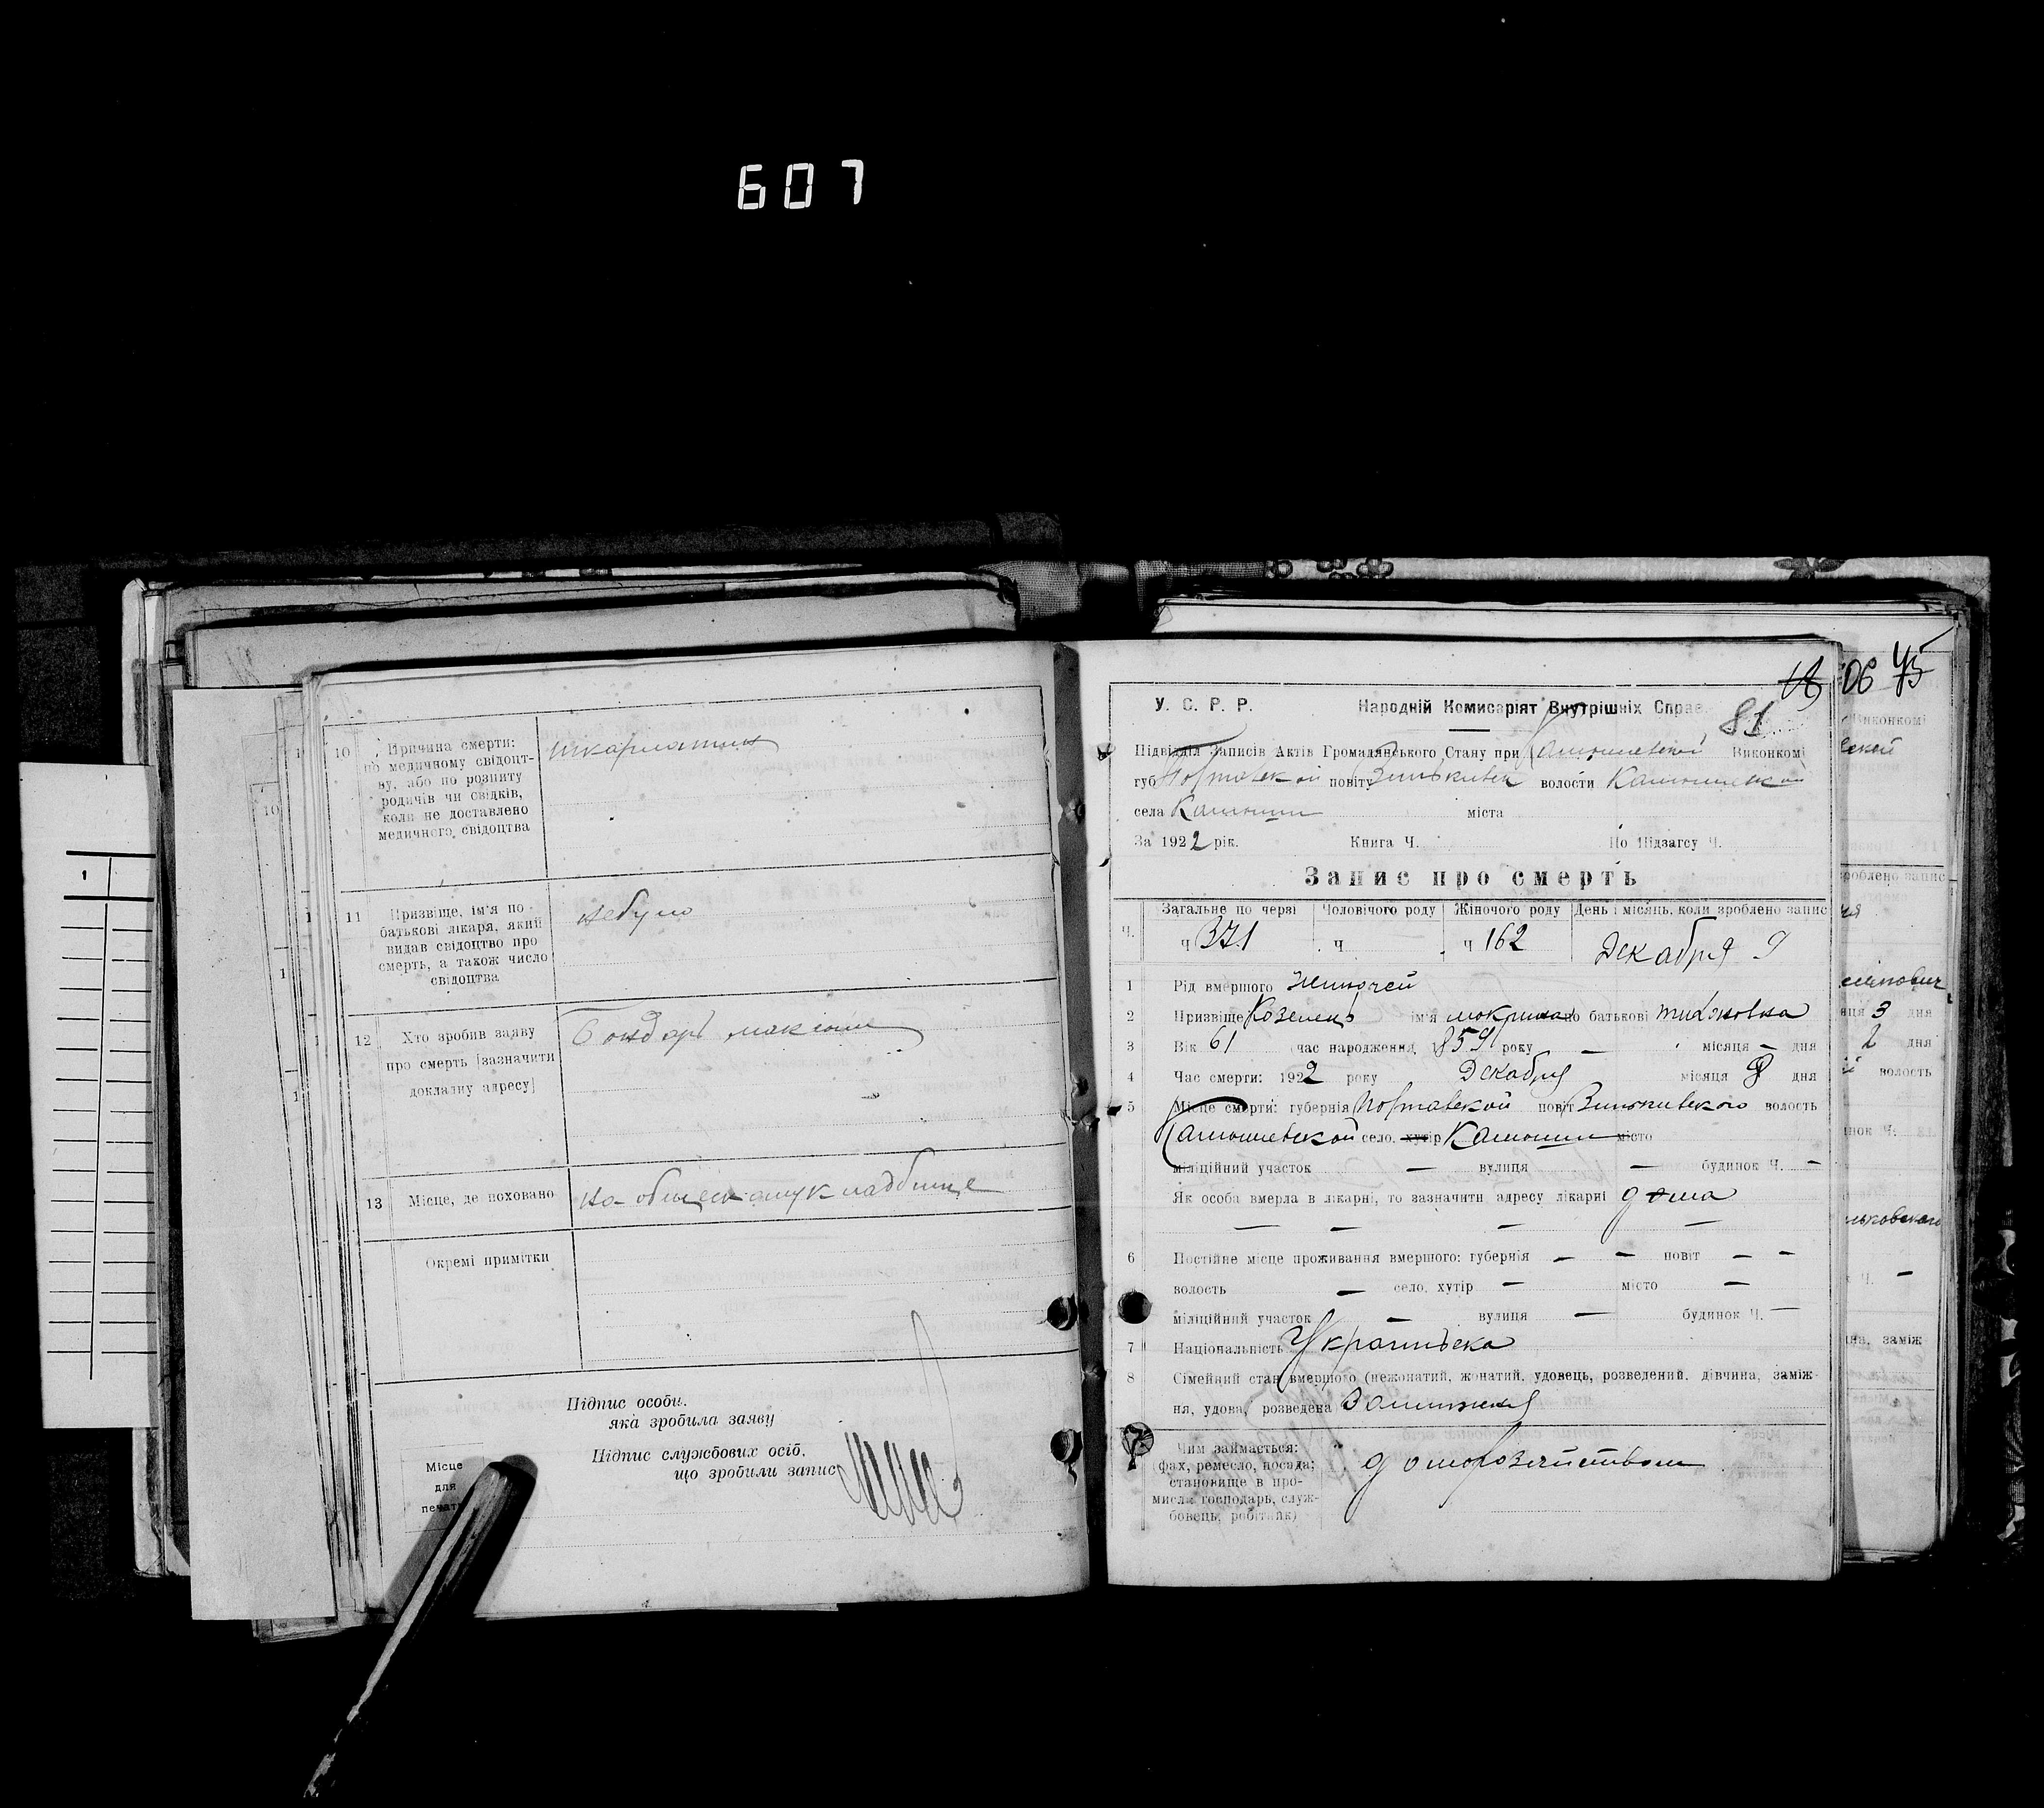 607
10
Причина смерти:
по медичному свідоцт-
ву, або по розпиту
родичів чи свідків,
коли не доставлено
медичного свідоцтва
шкарлатин
11
Призвіще, ім'я по
батькові лікаря, який
видав свідоцтво про
смерть, а також число
свідоцтва
небуло
12
Хто зробив заяву
про смерть [зазначити
докладну адресу]
Бондарь максим
13 Місце, де поховано
на общескому кладбище
Окремі примітки
Підпис особи,
яка зробила заяву
Підпис службових осіб,
що зробили запис
Місце
для
печати
45
У. С. Р. Р. Народній Комисаріят Внутрішніх Справ
81
Підвідділ Записів Актів Громадянського Стану при Виконкомі
губ Полтавской повіту Зиньківск волости
села міста
За 1922 рік. Книга Ч. По Підзагсу Ч.
Запис про смерть
Ч. Загальне по черзі Чоловічого роду Жіночого роду День і місяць, коли зроблено запис
ч 371 ч ч 162 Декабря 9
1 Рід вмершого Женочей
2 Призвіще Козелець ім'я мокрина по батькові тихоновна
3 Вік 61 час народження 859 року — місяця — дня
4 Час смерти: 1922 року Декабря місяця 8 дня
5 Місце смерти: губернія Полтавской повіт Зиньківского волость
село, хутір місто
міліційний участок — вулиця — будинок Ч. —
Як особа вмерла в лікарні, то зазначити адресу лікарні дома
— — — —
6 Постійне місце проживання вмершого: губернія — — повіт — —
волость — село, хутір — місто —
міліційний участок — вулиця — будинок Ч. —
7 Національність Українська
8 Сімейний стан вмершого (нежонатий, жонатий, удовець, розведений, дівчина, заміж-
ня, удова, розведена Замужня
Чим займається:
фах, ремесло, посада;
становище в про-
мислі господарь, служ-
бовець, робітник)
домохозяйством